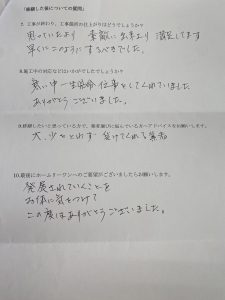 「依頼した後についての質問」
7. 工事が終わり、工事箇所の仕上がりはどうでしょうか?
思っていたより 素敵に出来上り 満足してます
早くにこのようにするべきでした。
8.施工中の対応などはいかがでしたでしょうか?
暑い中 一生懸命 仕事をしてくれていました
ありがとうございました。
9.修繕したいと思っている方で、業者選びに悩んでいる方へアドバイスをお願いします。
大、少々とわず 受けてくれる業者
10.最後にホームリーワンへのご要望がございましたらお願いします。
発展されていくことを
お体に気をつけて
この度はありがとうございました。